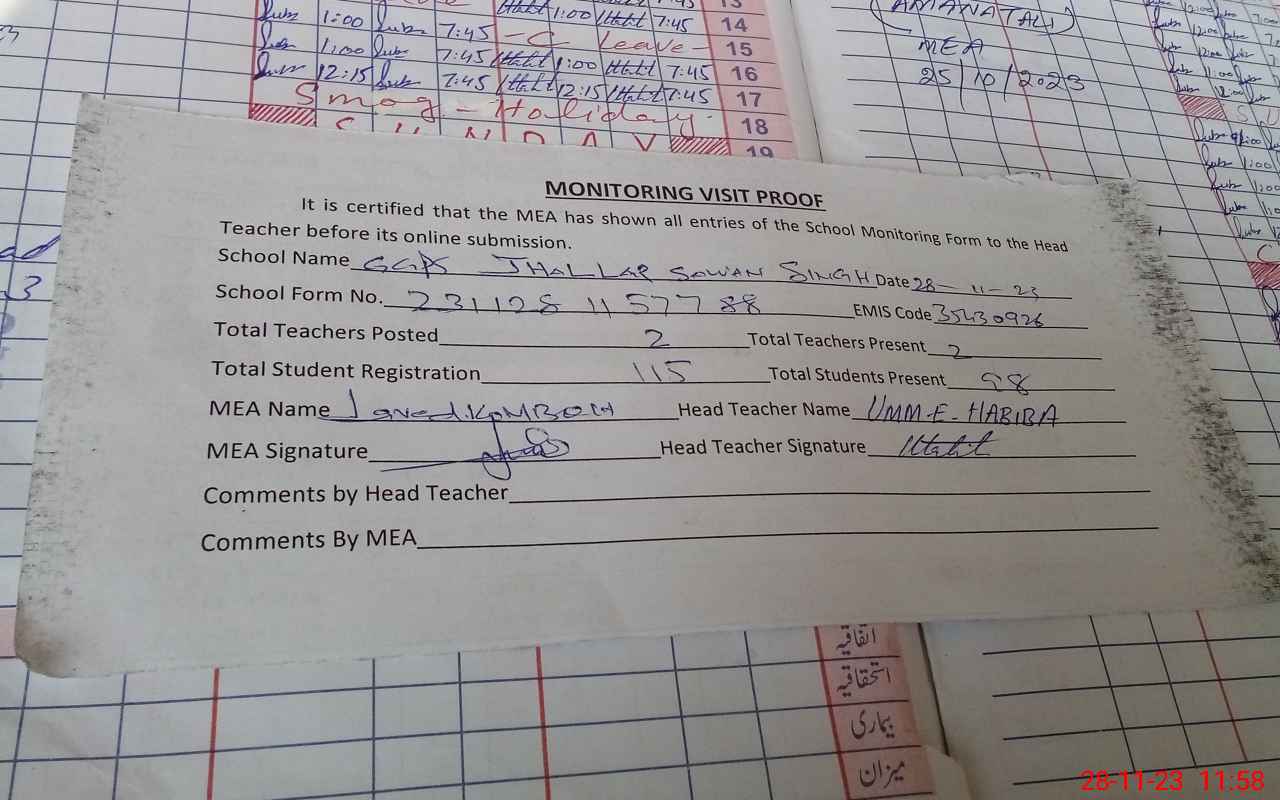 1:00 7:45 1:00 7:45 14
1:00 7:45 - C Leave - 15
12:15 7:45 1:00 7:45 16
7:45 12:15 7:45 17
Smog - Holiday. 18
S U N D A Y 19
(AMANAT ALI)
MEA
25/10/2023
MONITORING VISIT PROOF
It is certified that the MEA has shown all entries of the School Monitoring Form to the Head
Teacher before its online submission.
School Name GGPS JHALLAR SOWAN SINGH Date 28-11-23
School Form No. 231128 11577 88 EMIS Code 35430926
Total Teachers Posted 2 Total Teachers Present 2
Total Student Registration 115 Total Students Present 98
MEA Name Javed KAMBOH Head Teacher Name UMM-E-HABIBA
MEA Signature Head Teacher Signature
Comments by Head Teacher
Comments By MEA
اتفاقیہ
استحقاقیہ
بیماری
میزان
28-11-23 11:58